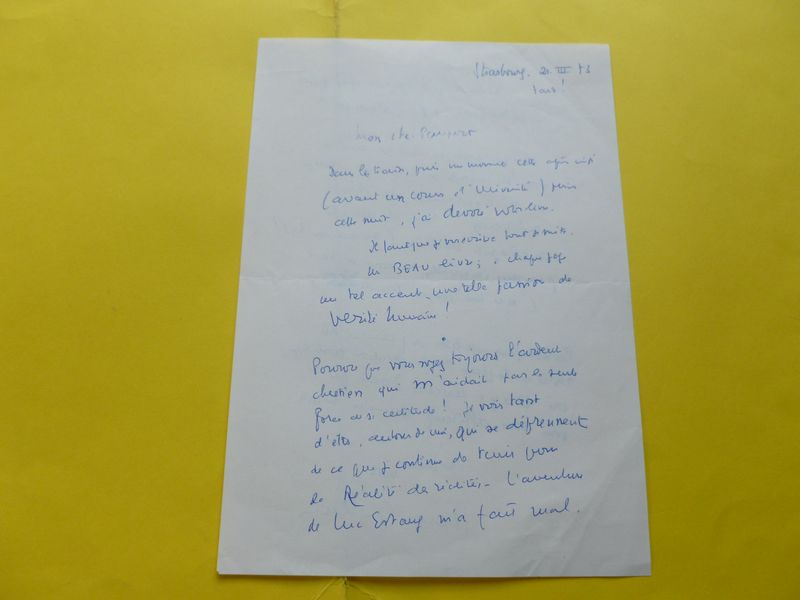 Strasbourg. 21. III. 73
tard!
Mon cher
Dans le train, puis un moment cette après midi
(avant un cours d'Université) puis
cette nuit, j'ai dévoré votre livre.
Il faut que je vous écrive tout de suite.
Un BEAU livre; à chaque page
un tel accent, une telle passion de
vérité humaine!
Pourvu que vous soyez toujours l'ardent
chrétien qui m'aidait par la seule
force de sa certitude! Je vois tant
d'êtres, autour de moi, qui se déprennent
de ce que je continue de tenir pour
la Réalité des réalités. L'aventure
de Luc Estang m'a fait mal.